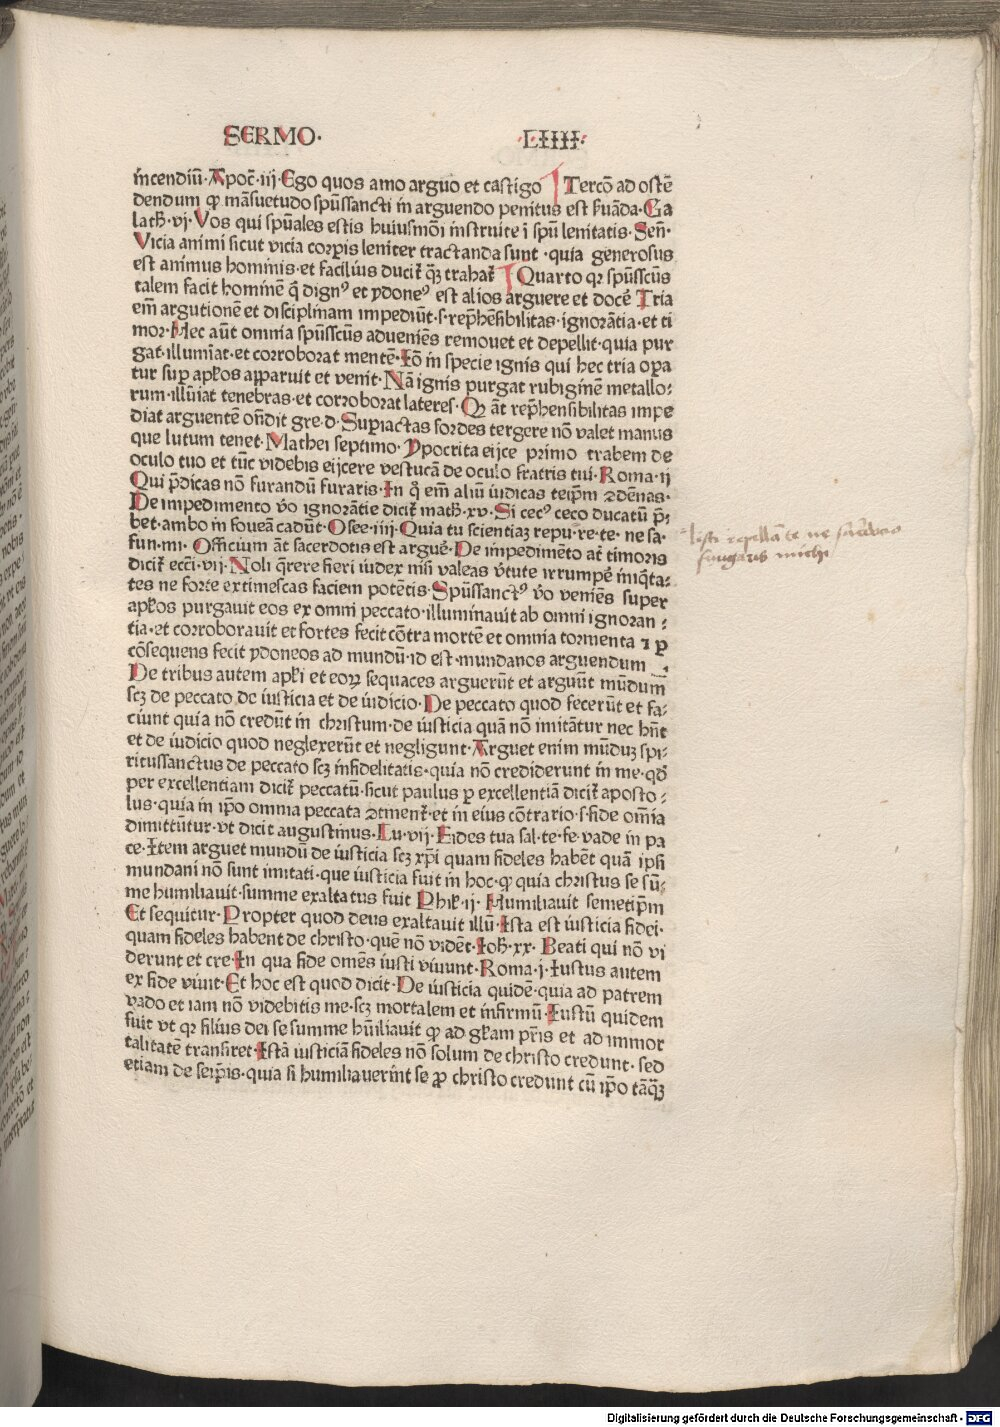 SERMO· ·LIIII·
incendiū·Apoc̄·iij·Ego quos amo arguo et castigo Tercō ad ostē
dendum ꝙ māsuetudo spūssancti in arguendo penitus est ẜuāda·Ga
lath̄·vj·Vos qui spūales estis huiusmōi instruite ī spū lenitatis·Sen̄·
Vicia animi sicut vicia corpīs leniter tractanda sunt ·quia generosus
est animus hominis·et facilius ducit̄ q̄ȝ trahat̄ Quarto qꝛ spūsscūs
talem facit hominē q̄ dignꝰ et ydoneꝰ est alios arguere et docē Tria
em̄ argutionē et disciplinam impediūt·s·rep̄hēsibilitas·ignorātia·et ti
mor·Hec aūt omnia spūsscūs adueniēs remouet et depellit·quia pur
gat·illumīat·et corroborat mentē·Iō in specie ignis qui hec tria opa
tur sup apl̄os apparuit et venit·Nā ignis purgat rubiginē metallo⸗
rum·illūiat tenebras·et corroborat lateres·Qꝛ āt rep̄hensibilitas impe
diat arguentē on̄dit gre·d·Supiactas sordes tergere nō valet manus
que lutum tenet·Mathei septimo·Ypocrita eijce primo trabem de
oculo tuo et tūc videbis eijcere vestucā de oculo fratris tui·Roma·ij
Qui p̄dicas nō furandū furaris·In q̊ em̄ aliū iudicas teip̄m ꝯdēnas·
De impedimento v̄o ignorātie dicit̄ math̄·xv·Si cecꝰ ceco ducatū p̄⸗
bet·ambo in foueā cadūt·Osee·iiij·Quia tu scientiaȝ repu·re·te·ne sa·
fun·mi· Officium āt sacerdotis est arguē·De impedimēto at̄ timoris
dicit̄ ecc̄i·vij·Noli q̄rere fieri iudex nisi valeas v̄tute irrumpē iniq̄ta⸗
tes ne forte extimescas faciem potētis·Spūssanctꝰ v̄o veniēs super
apl̄os purgauit eos ex omni peccato·illuminauit ab omni ignoran⸗
tia·et corroborauit et fortes fecit cōtra mortē et omnia tormenta ⁊ ꝑ
cōsequens fecit ydoneos ad mundū·id est·mundanos arguendum ·
De tribus autem apl̄i et eoꝝ sequaces arguerūt et arguūt mūdum
scȝ de peccato de iusticia et de iudicio·De peccato quod fecerūt et fa⸗
ciunt quia nō credūt in christum·de iusticia quā nō imitātur nec hn̄t
et de iudicio quod neglexerūt et negligunt·Arguet enim mūduȝ spi⸗
ritussanctus de peccato scȝ infidelitatis·quia nō crediderunt in me·qd̄
per excellentiam dicit̄ peccatū·sicut paulus ꝑ excellentiā dicit̄ aposto⸗
lus·quia in ip̄o omnia peccata ꝯtinent̄·et in eius cōtrario·s·fide om̄ia
dimittūtur·vt dicit augustinus·Lu·vij·Fides tua sal·te·fe·vade in pa
ce·Item arguet mundū de iusticia scȝ xp̄i quam fideles habēt quā ipsi
mundani nō sunt imitati·que iusticia fuit in hoc·ꝙ quia christus se sū⸗
me humiliauit·summe exaltatus fuit Phil̄·ij·Humiliauit semetip̄m
Et sequitur·Propter quod deus exaltauit illū·Ista est iusticia fidei·
quam fideles habent de christo·quē nō vidēt·Ioh̄·xx·Beati qui nō vi
derunt et cre·In qua fide omēs iusti viuunt·Roma·j·Iustus autem
ex fide viuit·Et hoc est quod dicit·De iusticia quidē·quia ad patrem
vado et iam nō videbitis me·scȝ mortalem et infirmū·Iustū quidem
fuit vt qꝛ filius dei se summe hūiliauit ꝙ ad gl̄am pr̄is et ad immor
talitatē transiret·Istā iusticiā fideles nō solum de christo credunt·sed
etiam de seip̄is·quia si humiliauerint se ꝓ christo credunt cū ip̄o tāq̄ȝ
repellā te ne
fungaris michi
Digitalisierung gefördert durch die Deutsche Forschungsgemeinschaft · DFG